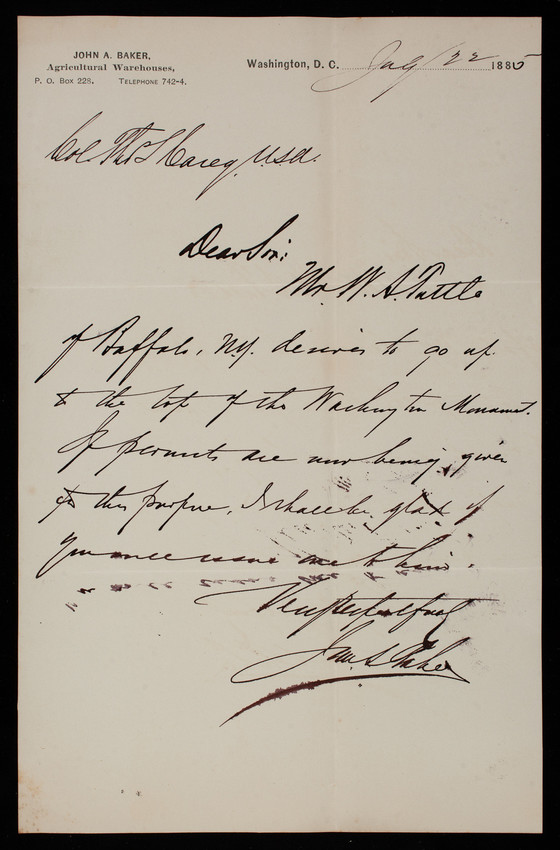 JOHN A. BAKER,
Agricultural Warehouses,
P. O. Box 228. TELEPHONE 742-4.
Washington, D. C. 22 1885
Col. Thos L Casey, U.S.A.
Dear Sir:
Mr. W. S. Tuttle
of Buffalo, N.Y. desires to go up
to the top of the Washington Monument.
If permits are now being given
for this purpose, I shall be glad if
you will issue one to him.
Very Respectfully
Jno. A Baker